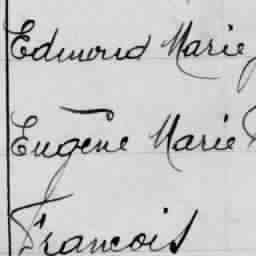 Edmond Marie
Eugène Marie
Francois